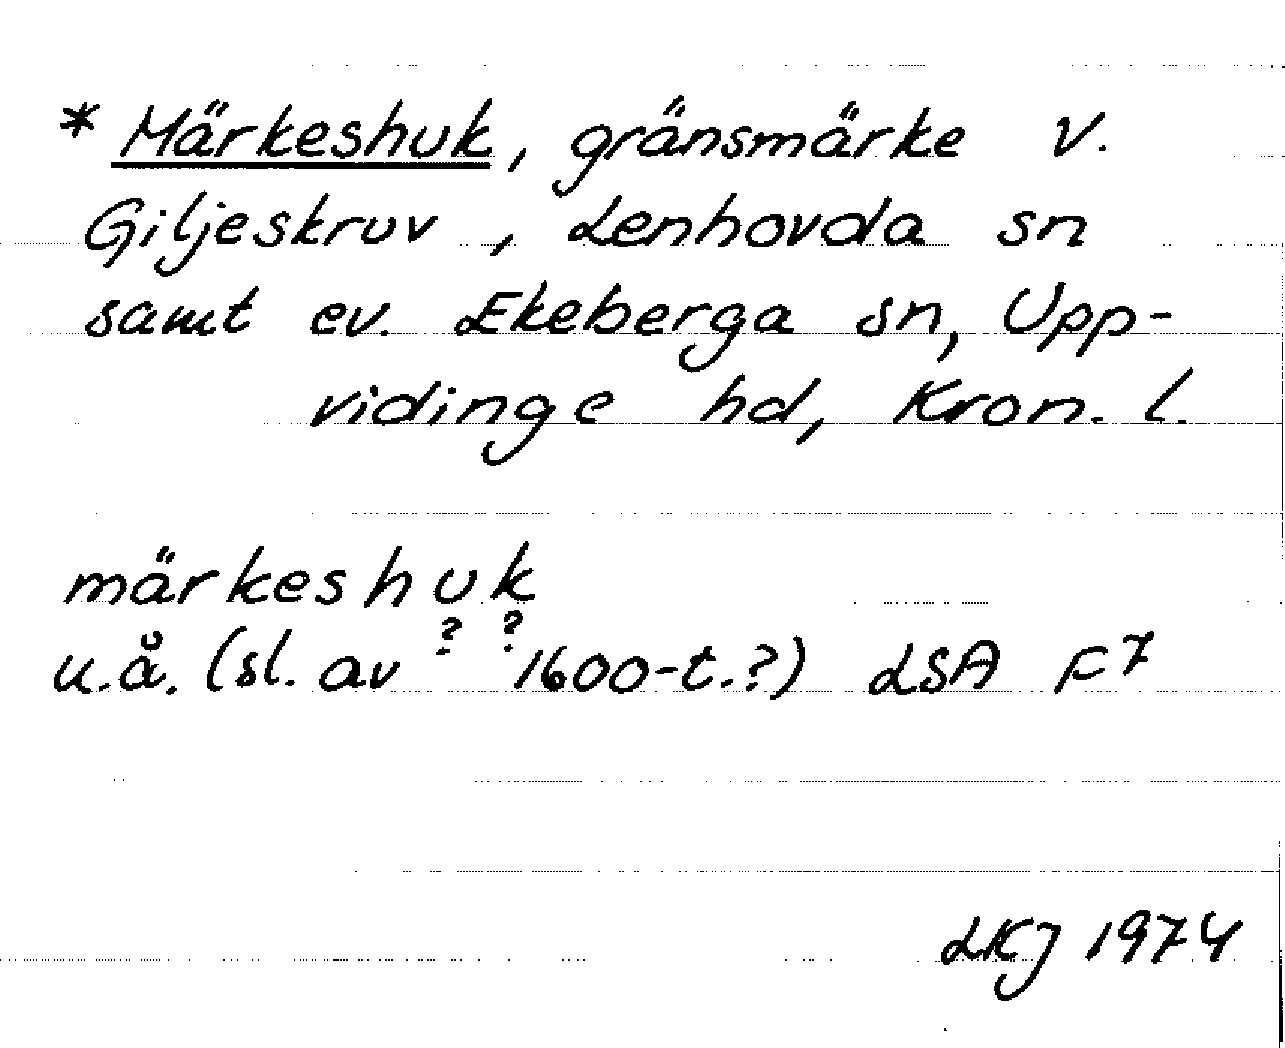 * Märkeshuk, gränsmärke v.
Giljeskruv, Lenhovda sn
samt ev. Ekeberga sn, Upp-
vidinge hd, Kron. l.
märkeshuk
? ?
u.å. (sl. av 1600-t.?) LSA F7
LKJ 1974